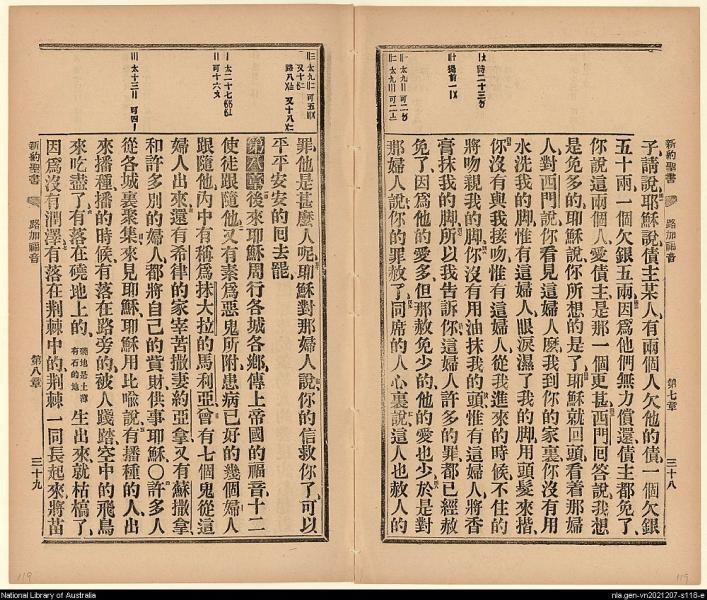 新約聖書
路加福音
第七章
三十八
子、請說、耶穌說、債主某人、有兩個人欠他的債、一個欠銀
五十兩、一個欠銀五兩、因爲他們無力償還、債主都免了、
你說這兩個人、愛債主是那一個更甚、西門回答說、我想
是免多的、耶穌說、你所想的是了、耶穌就回頭看着那婦
人、對西門說、你看見這婦人麽、我到你的家裏、你沒有用
水洗我的脚、惟有這婦人、眼淚濕了我的脚、用頭髮來揩、
你沒有與我接吻、惟有這婦人、從我進來的時候、不住的
將吻親我的脚、你沒有用油抹我的頭、惟有這婦人將香
膏抹我的脚、所以我告訴你、這婦人許多的罪、都已經赦
免了、因爲他的愛多、但那赦免少的、他的愛也少、於是對
那婦人說、你的罪赦了、同席的人心裏說、這人也赦人的
罪、他是甚麽人呢、耶穌對那婦人說、你的信救你了、可以
平平安安的回去罷、
第八章 後來耶穌周行各城各鄉、傳上帝國的福音、十二
使徒跟隨他、又有素爲惡鬼所附患病已好的幾個婦人
跟隨他、內中有稱爲抹大拉的馬利亞、曾有七個鬼從這
婦人出來、還有希律的家宰苦撒妻約亞拿、又有蘇撒拿、
和許多別的婦人、都將自己的貲財供事耶穌○許多人
從各城裏聚集來見耶穌、耶穌用比喩說、有播種的人出
來播種、播的時候、有落在路旁的、被人踐踏、空中的飛鳥
來吃盡了、有落在磽地上的、磽地是土薄有石的地 生出來就枯槁了、
因爲沒有潤澤、有落在荆棘中的、荆棘一同長起來、將苗
新約聖書
路加福音
第八章
三十九
National Library of Australia
nla.gen-vn2021207-s118-e